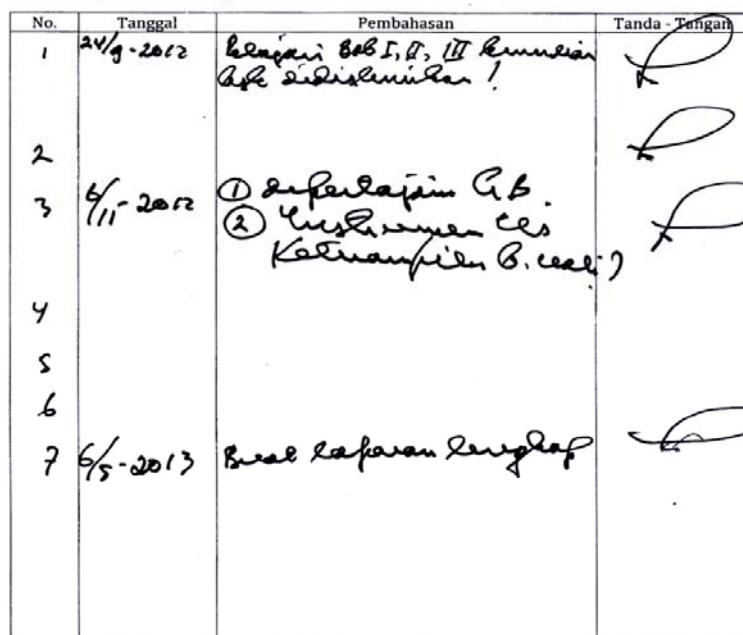 No. Tanggal Pembahasan Tanda - Tangan
1 24/9-2012 Pelajari Bab I, II, III kemudian
didiskusikan !
2
3 6/11-2012 ① diperlajari GB
② Instrumen tes
Keterampilan B.
4
5
6
7 6/5-2013 Buat laporan lengkap